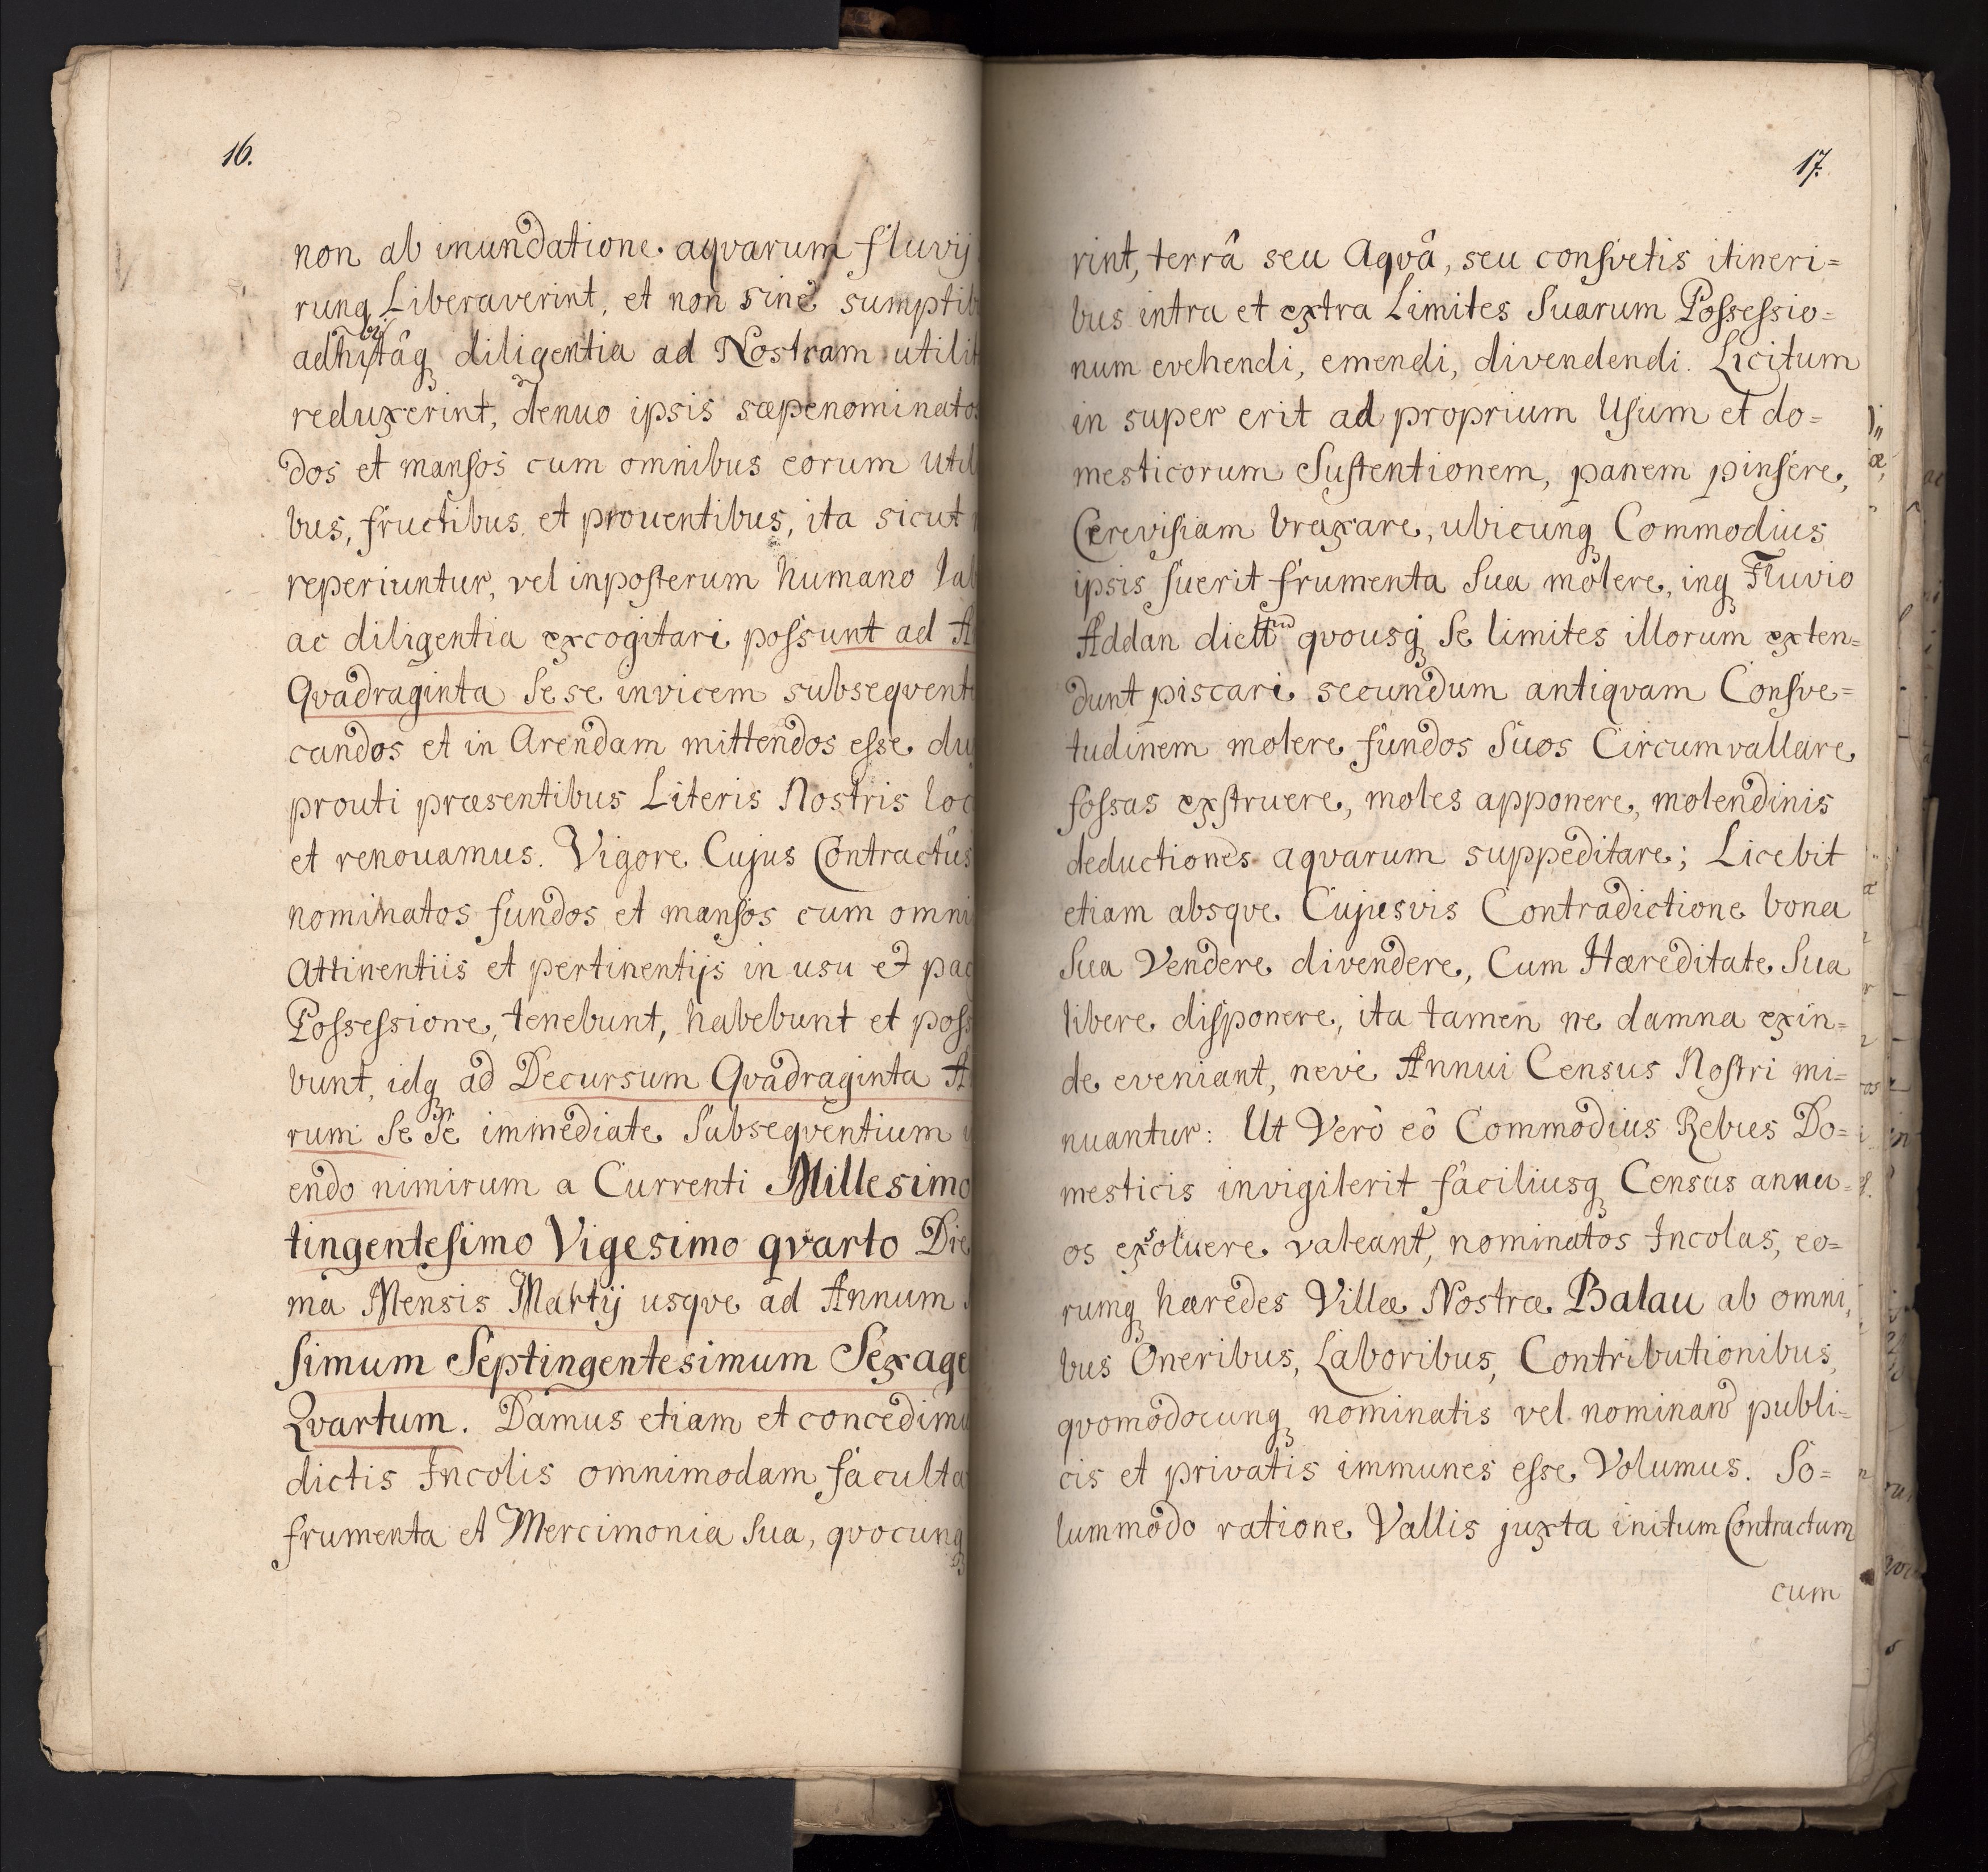 16.
non ab inundatione aqvarum fluvij
runq Liberaverint, et non sine sumptib
adhibitâq diligentia ad Nostram utilit
reduxerint, denuo ipsis sæpenominatos
dos et mansos cum omnibus eorum util
bus, fructibus et prouentibus, ita sicut
reperiuntur, vel inposterum humano lab
ac diligentia excogitari possunt ad A
Qvadraginta sese invicem subseqvent
candos et in Arendam mittendos esse du
prouti præsentibus Literis Nostris loc
et renouamus. Vigore Cujus Contractûs
nominatos fundos et mansos cum omni
Attinentiis et pertinentijs in usu et pac
Possessione, tenebunt, habebunt et poss
bunt, idq ad Decursum Qvadraginta A
rum Se Se immediate Subseqventium
endo nimirum a Currenti Millesimo
tingentesimo Vigesimo qvarto Die
ma Mensis Martij usqve ad Annum
simum Septingentesimum Sexage
Qvartum. Damus etiam et concedimu
dictis Incolis omnimodam faculta
frumenta et Mercimonia sua, qvocunq
17.
rint, terrâ seu Aqvâ, seu consvetis itineri=
bus intra et extra Limites Suarum Possessio=
num evehendi, emendi, divendendi. Licitum
in super erit ad proprium Usum et do=
mesticorum Sustentionem, panem pinsere,
Cerevisiam braxare, ubicunq Commodius
ipsis fuerit frumenta Sua molere, inq Fluvio
Addan qvousq Se limites illorum exten=
dunt piscari secundum antiqvam Consve=
tudinem molere fundos Suos Circumvallare
fossas exstruere, moles apponere, molendinis
deductiones aqvarum suppeditare; Licebit
etiam absqve Cujusvis Contradictione bona
Sua Vendere divendere, Cum Hæreditate Sua
libere disponere, ita tamen ne damna exin=
de eveniant, neve Annui Census Nostri mi=
nuantur: Ut Verò eô Commodius Rebus Do=
mesticis invigilerit faciliusq Census annu=
os exsoluere valeant, nominatos Incolas, eo=
rumq hæredes Villæ Nostræ Balau ab omni,
bus Oneribus, Laboribus, Contributionibus,
qvomodocunq nominatis vel nominand publi=
cis et privatis immunes esse Volumus. So=
lummodo ratione Vallis juxta initum Contractum
cum